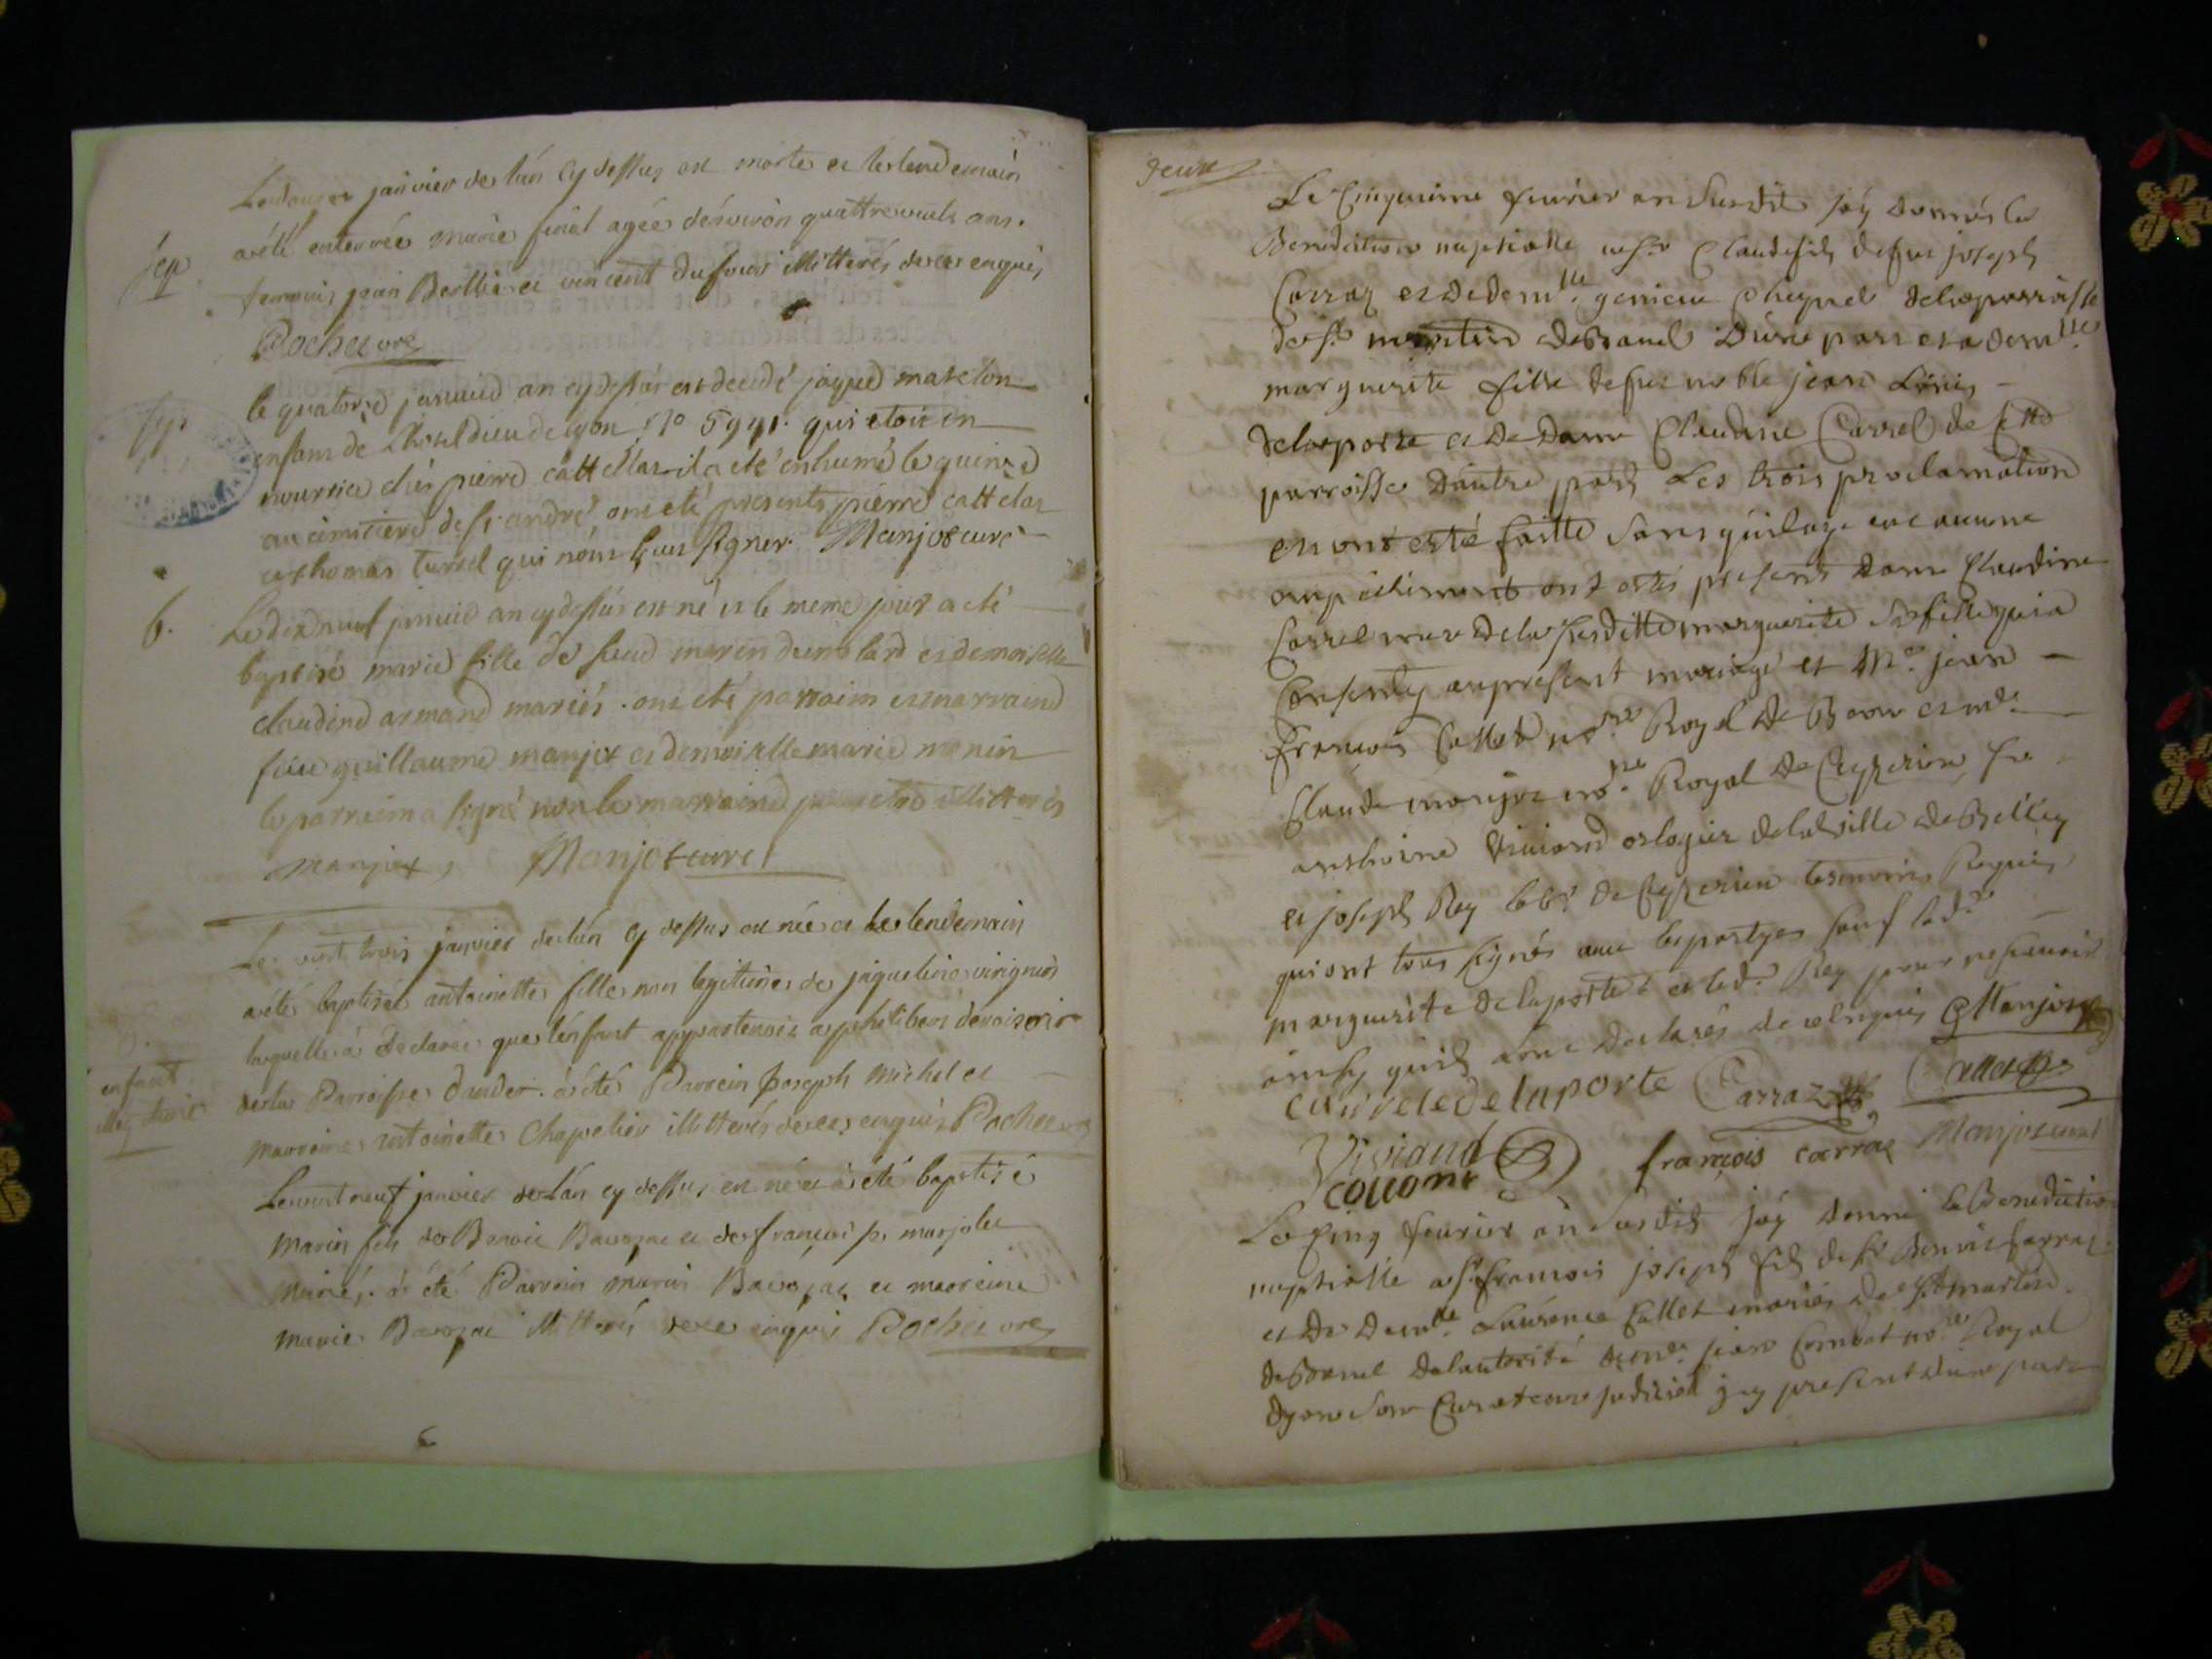 Le douze janvier de l'an cy dessus est morte et le lendemain
a été enterrée Marie finet agée d'environ quattrevints ans.
sep
temouins jean Berthier et vincent Dufour illitterés de ce enquis
Pocheur
le quatorze janvier an cy dessus est decedé jaque
enfans de L'hoteldieu de lyon No 5991. qui etoit en
sep
nourrice chés pierre cattelar il a été enhumé le quinze
au cimitiere de st andré, ont été presents pierre cattelar
et thomas turrel qui n'ont sceu signer. Manjot curé
b.
Le dix neuf janvier an cy dessus est né et le meme jour a été
baptisé marie fille de sieur et demoiselle
claudine armand mariés. ont été parrain et marraine
sieur guillaume manjot et demoiselle marie monin
le parrain a signé non la marraine pour etre illitterés
manjot Manjot curé
Le vint trois janvier de l'an cy dessus est née et le lendemain
a été baptisée antoinette fille non legitime de jaqueline
laquelle a declaré que l'enfant appartenoit a philibert
enfant
illegitime
de la Parroisse d'ander. a été Parrein joseph Michel et
marreine antoinette Chapelier illitterés de ce enquis Pocheur
Le vint neuf janvier de l'an cy dessus est né et a été baptisé
Marin fils de Benoit Bavozac et de françoise marjolet
mariés. a été Parrein marin Bavozac et marreine
marie Bavozac illitterés de ce enquis Pocheur
deux
Le Cinquieme fevrier an susdit j'ay donnés la
Benediction nuptialle a sr Claude fils de feu joseph
Carraz et de demlle. de la parroisse
de st. martin de Bavel d'une part et a demlle
marguerite fille de feu noble jean Louis
de la porte et de dame Claudine Carrel de cette
parroisse d'autre part Les trois proclamation
en ont esté faitte sans qu'il aye eue aucune
empechement ont estés presents dame Claudine
Carrel mere de la susditte marguerite sa fille qui a
Consenty au present mariage et Me. jean
françois Callet nore Royal de et me.
Claude manjot nore. Royal de Ceyzerieu sr
anthoine Viviand orlogier de la ville de Belley
et joseph Rey de Ceyzerieu temoins Requis
qui ont tous signés avec les partyes sauf lade
marguerite de laporte et led. Rey pour ne sçavoir
ainsy qu'ils ont declarés de ce enquis Manjot
delaporte Carraz Callet
Viviand
françois carraz Manjot curé
Le Cinq fevrier an susdit j'ay donné la Benediction
nuptialle a sr. francois joseph fils de sr
et de demlle Laurence Callet mariés de St martin
de Bavel de l'autorité de me. jean Combet nore Royal
son Curateur judiciel icy present d'une part